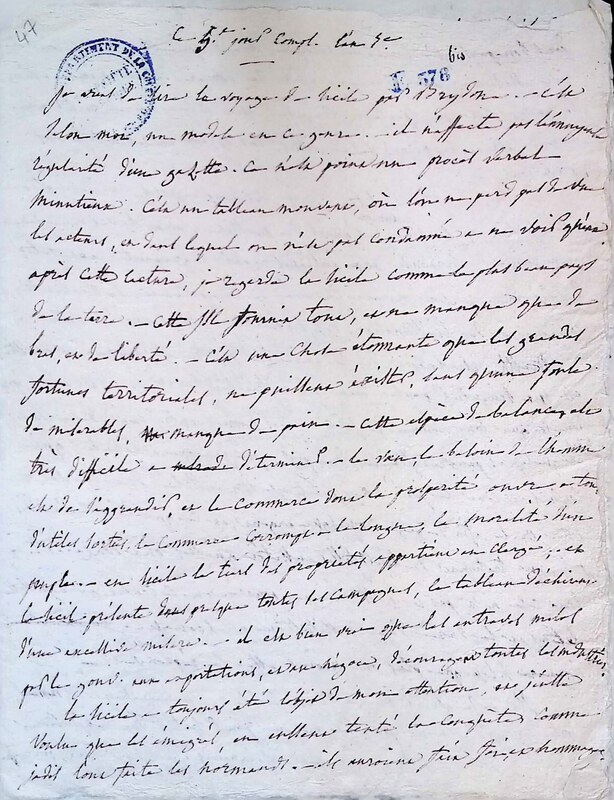 47
Ce 5.e jour Compl. l'an 5e
bis
N 378
DEPARTEMENT DE LA
je viens de lire le voyage de Sicile par Brydon. - C'est
selon moi, un modele en ce genre. - il n'affecte pas l'ennuyeuse
régularité d'une gazette. Ce n'est point un procès verbal
minutieux. C'est un tableau mouvant, où l'on ne perd pas de vue
les acteurs, et dans lequel on n'est pas condamné a ne voir qu'eux.
après cette lecture, je regarde la Sicile comme le plus beau pays
de la terre. - Cette isle fournit tout, et ne manque que de
bras, et de liberté. - C'est une chose étonnante que les grandes
fortunes territoriales, ne puissent éxister, sans qu'une foule
de miserables, manque de pain. - Cette espèce de balance, est
très difficile a déterminer. - le voeu, le besoin de l'homme
est de s'aggrandir, et le commerce dont la prosperité ouvre a tous
d'utiles sorties, le commerce corrompt a la longue, la moralité d'un
peuple. - en Sicile le tiers des proprietés appartient au clergé; et
la Sicile présente dans presque toutes ses campagnes, le tableau déchirant
d'une excessive misère. - il est bien vrai que les entraves mises
par le gouv. aux exportations, et au négoce, découragent toutes les industries.
la Sicile a toujours été l'objet de mon attention, et j'eusse
voulu que les émigrés, en eussent tenté la conquête comme
jadis l'ont faite les normands. - ils auroient fait foi, et hommage